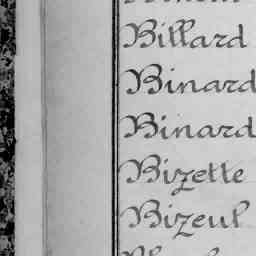 Billard
Binard
Binard
Bizette
Bizeul